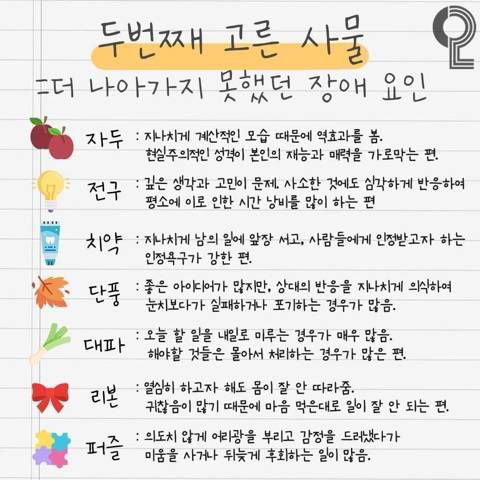 두번째 고른 사물
=더 나아가지 못했던 장애 요인
자두 : 지나치게 계산적인 모습 때문에 역효과를 봄.
현실주의적인 성격이 본인의 재능과 매력을 가로막는 편.
전구 : 깊은 생각과 고민이 문제. 사소한 것에도 심각하게 반응하여
평소에 이로 인한 시간 낭비를 많이 하는 편
치약 : 지나치게 남의 일에 앞장 서고, 사람들에게 인정받고자 하는
인정욕구가 강한 편.
단풍 : 좋은 아이디어가 많지만, 상대의 반응을 지나치게 의식하여
눈치보다가 실패하거나 포기하는 경우가 많음.
대파 : 오늘 할 일을 내일로 미루는 경우가 매우 많음.
해야할 것들은 몰아서 처리하는 경우가 많은 편.
리본 : 열심히 하고자 해도 몸이 잘 안 따라줌.
귀찮음이 많기 때문에 마음 먹은대로 일이 잘 안 되는 편.
퍼즐 : 의도치 않게 어리광을 부리고 감정을 드러냈다가
미움을 사거나 뒤늦게 후회하는 일이 많음.